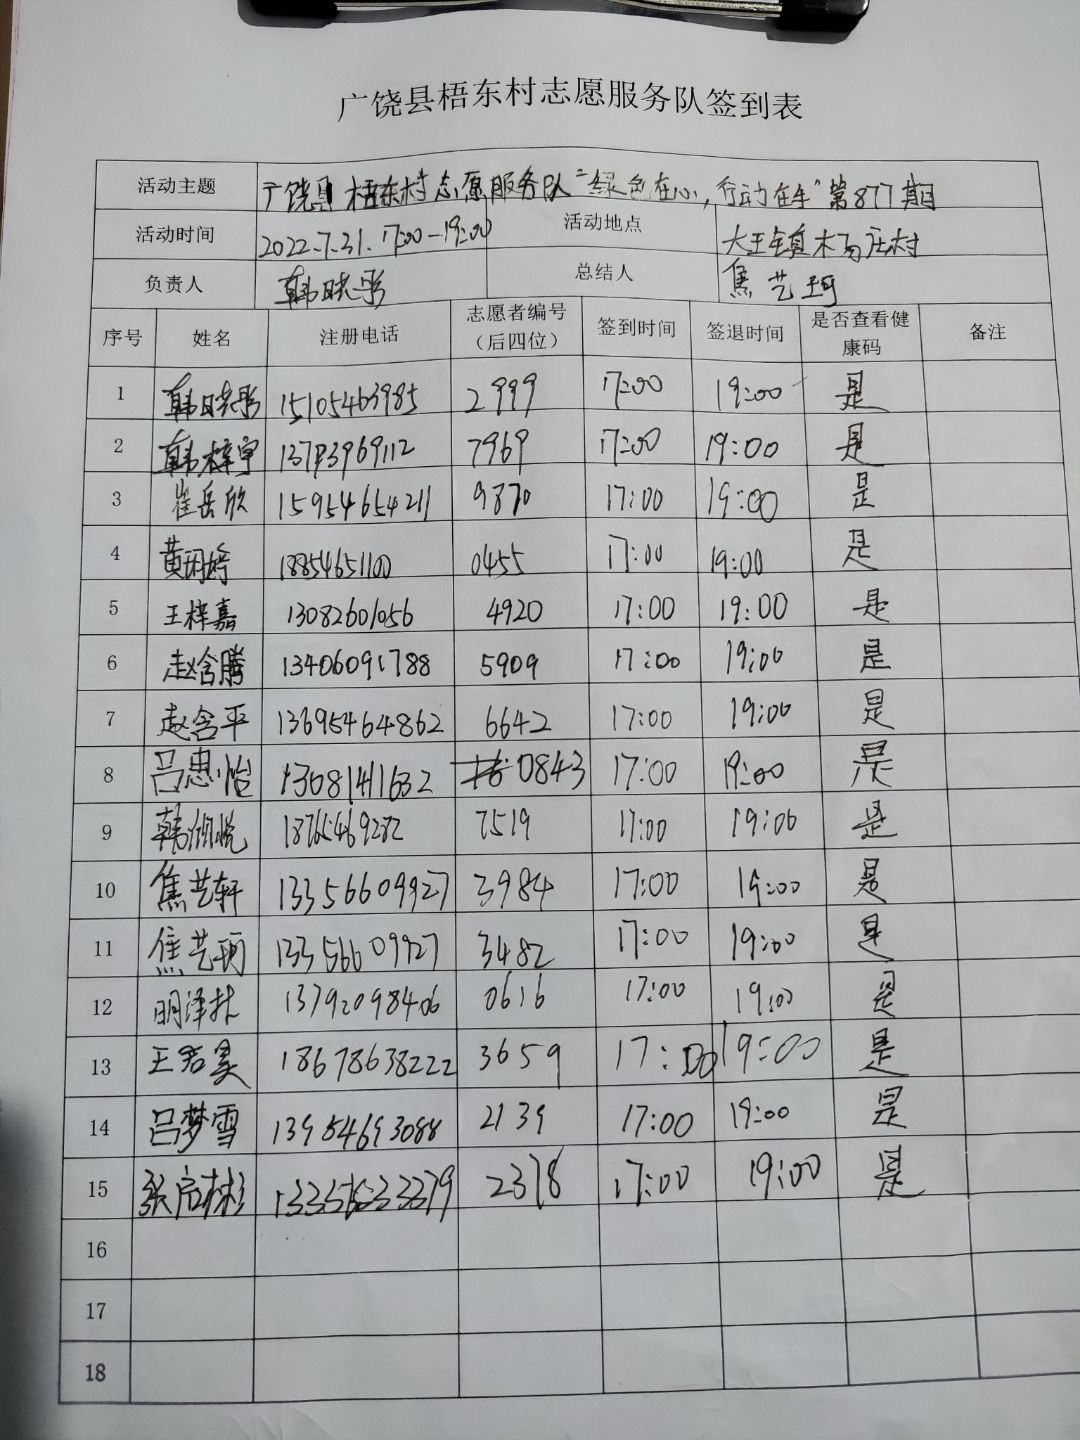 广饶县梧东村志愿服务队签到表
活动主题 广饶县梧东村志愿服务队“绿色在心,行动在手”第877期
活动时间 2022.7.31.17:00-19:00 活动地点 大王镇木马庄村
负责人 韩晓彤 总结人 焦艺珂
序号 姓名 注册电话 志愿者编号(后四位) 签到时间 签退时间 是否查看健康码 备注
1 韩晓彤 15105463985 2999 17:00 19:00 是
2 韩梓宇 13793969112 7969 17:00 19:00 是
3 崔岳欣 15954654211 9870 17:00 19:00 是
4 黄婷 18854651100 0455 17:00 19:00 是
5 王梓嘉 13082601056 4920 17:00 19:00 是
6 赵含腾 13406091788 5909 17:00 19:00 是
7 赵含平 13695464862 6642 17:00 19:00 是
8 吕惠怡 13081411632 0843 17:00 19:00 是
9 韩悦 18765469282 7519 17:00 19:00 是
10 焦艺轩 13356609927 3984 17:00 19:00 是
11 焦艺珂 13356609927 3482 17:00 19:00 是
12 明泽 13792098406 0616 17:00 19:00 是
13 王若昊 18678638222 3659 17:00 19:00 是
14 吕梦雪 13954693088 2139 17:00 19:00 是
15 张彬 2378 17:00 19:00 是
16
17
18